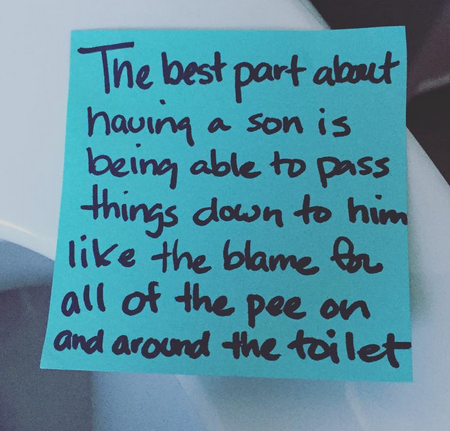 The best part about
having a son is
being able to pass
things down to him
like the blame for
all of the pee on
and around the toilet